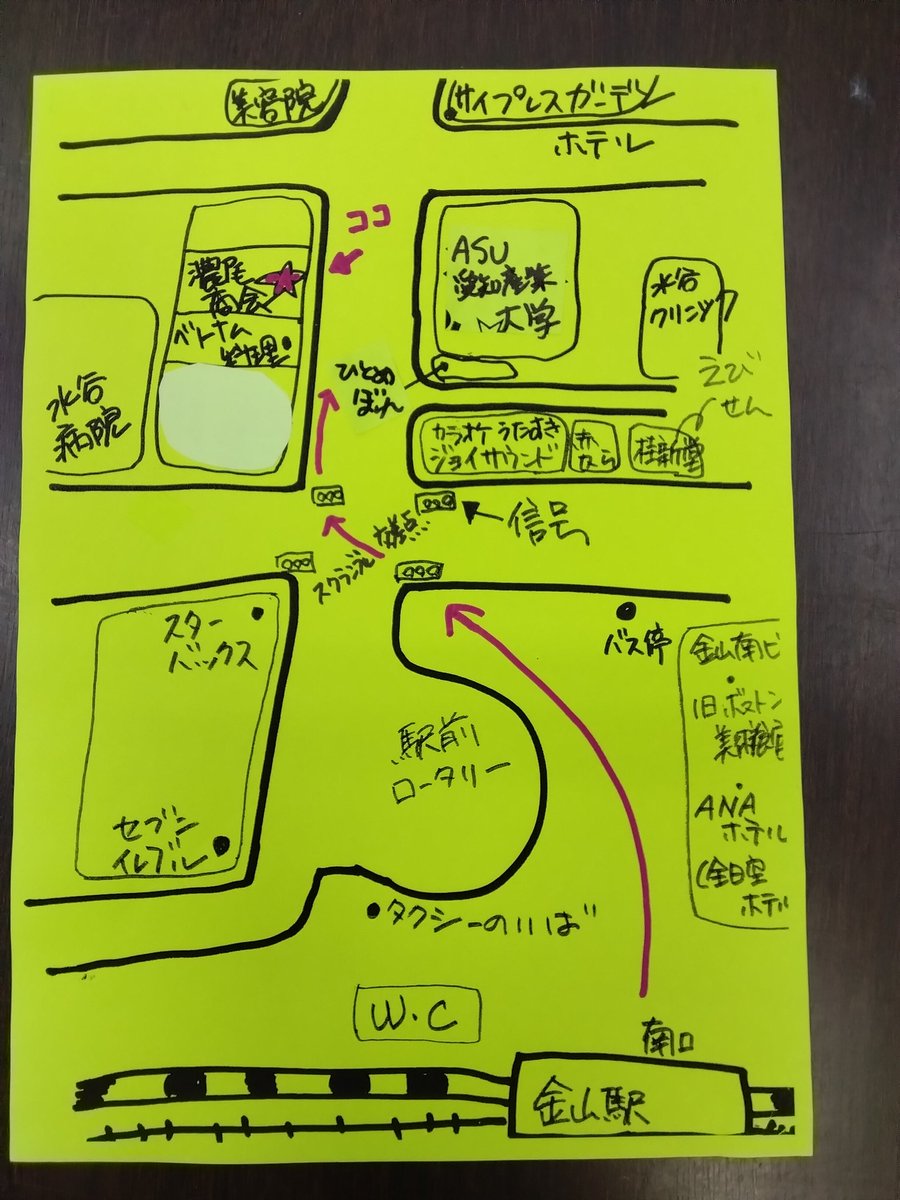 美容院
サイプレスガーデン
ホテル
ココ
濃尾
商会
ベトナム
料理
ASU
愛知産業
大学
水谷
クリニック
ひとめ
ぼれ
えび
せん
水谷
病院
カラオケ うたすき
ジョイサウンド
赤
なら
桂新堂
信号
スクランブル交差点
スター
バックス
バス停
金山南ビ
旧ボストン
美術館
ANA
ホテル
(全日空
ホテル
駅前
ロータリー
セブン
イレブン
タクシーのりば
W.C
南口
金山駅